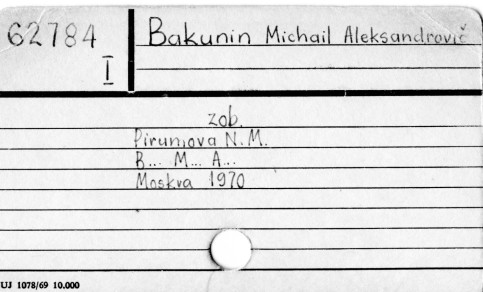 62784
I
Bakunin Michail Aleksandrovič
zob.
Pirumova N.M.
B... M... A...
Moskva 1970
UJ 1078/69 10.000